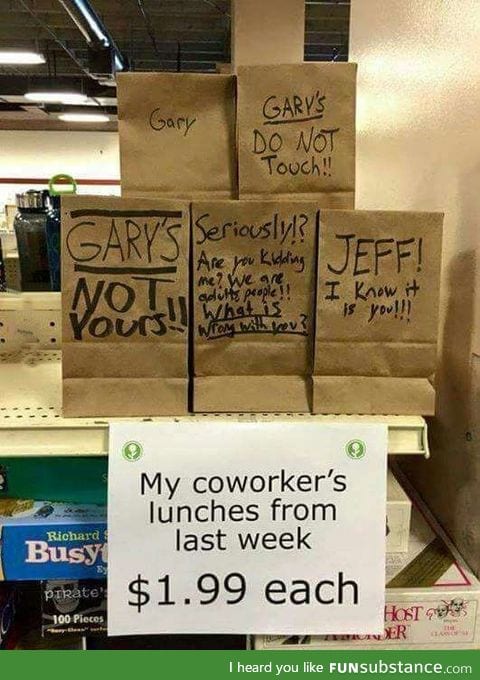 Gary
GARY'S
DO NOT
Touch!!
GARY'S
NOT
Yours!!
Seriously!?
Are you kidding
me? We are
adults people!!
What is
wrong with you?
JEFF!
I know it
is you!!!
My coworker's
lunches from
last week
$1.99 each
Richard
Busy
PIRATE'S
100 Pieces
HOST
A MURDER
I heard you like FUNsubstance.com